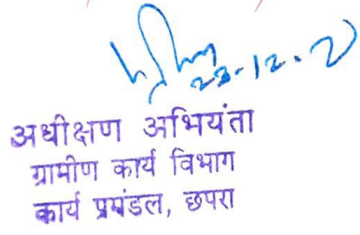 22.12.2
अधीक्षण अभियंता
ग्रामीण कार्य विभाग
कार्य प्रमंडल, छपरा